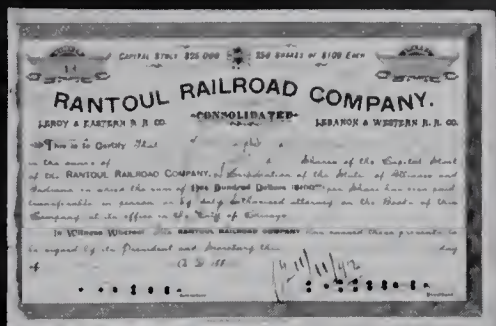 14
CAPITAL STOCK $25 000 250 SHARES OF $100 EACH
RANTOUL RAILROAD COMPANY.
LEROY & EASTERN R. R. CO. CONSOLIDATED LEBANON & WESTERN R. R. CO.
This is to Certify That
is the owner of Shares of the Capital Stock
of the RANTOUL RAILROAD COMPANY, a Corporation of the State of Illinois and
Indiana on which the sum of One Hundred Dollars per Share has been paid
transferable in person or by duly authorized attorney on the Books of this
Company at its office in the City of Chicago
In Witness Whereof The RANTOUL RAILROAD COMPANY has caused these presents to
be signed by its President and Secretary this day
of 188